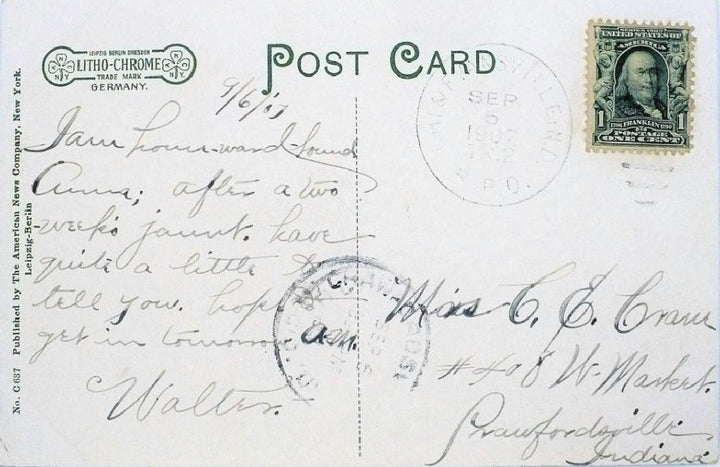 LEIPZIG BERLIN DRESDEN
LITHO-CHROME
TRADE MARK
GERMANY.
K N Y
POST CARD
9/6/07
I am home-ward-bound
Anna; after a two
weeks jaunt. have
quite a little to
tell you. hope
get in tomorrow a.m.
Walter.
SEP
6
1907
R.P.O.
SERIES 1902
UNITED STATES OF
AMERICA
1 FRANKLIN 1
POSTAGE
ONE CENT
SEP 6
Miss C. E. Cram
#408 W. Market.
Crawfordsville
Indiana
No. C 637 Published by The American News Company, New York.
Leipzig-Berlin